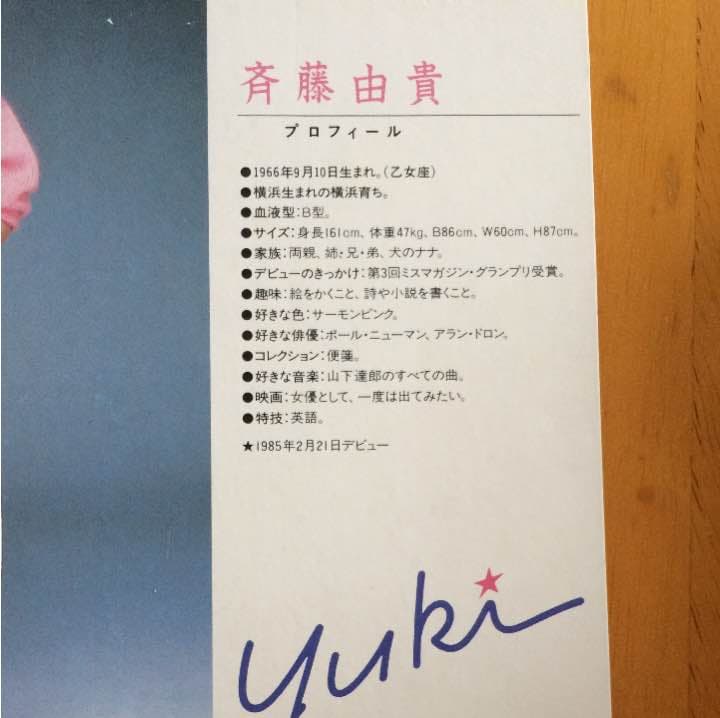 斉藤由貴
プロフィール
●1966年9月10日生まれ。(乙女座)
●横浜生まれの横浜育ち。
●血液型:B型。
●サイズ:身長161cm、体重47kg、B86cm、W60cm、H87cm。
●家族:両親、姉・兄・弟、犬のナナ。
●デビューのきっかけ:第3回ミスマガジン・グランプリ受賞。
●趣味:絵をかくこと、詩や小説を書くこと。
●好きな色:サーモンピンク。
●好きな俳優:ポール・ニューマン、アラン・ドロン。
●コレクション:便箋。
●好きな音楽:山下達郎のすべての曲。
●映画:女優として、一度は出てみたい。
●特技:英語。
★1985年2月21日デビュー
yuki